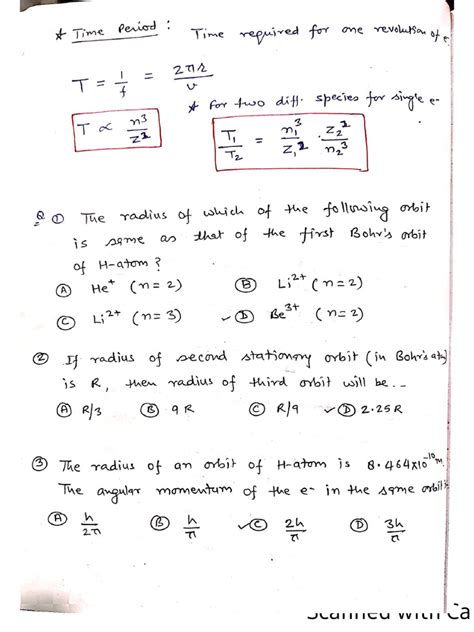 * Time Period : Time required for one revolution of e-
T = 1/f = 2πr/v
* For two diff. species for single e-
T ∝ n³/z²
T₁/T₂ = n₁³/z₁² · z₂²/n₂³
Q ① The radius of which of the following orbit
is same as that of the first Bohr's orbit
of H-atom?
Ⓐ He⁺ (n=2) Ⓑ Li²⁺ (n=2)
Ⓒ Li²⁺ (n=3) ✓Ⓓ Be³⁺ (n=2)
② If radius of second stationary orbit (in Bohr's atm)
is R, then radius of third orbit will be...
Ⓐ R/3 Ⓑ 9R Ⓒ R/9 ✓Ⓓ 2.25R
③ The radius of an orbit of H-atom is 8.464×10⁻¹⁰m.
The angular momentum of the e- in the same orbit
Ⓐ h/2π Ⓑ h/π ✓Ⓒ 2h/π Ⓓ 3h/π
Scanned with Ca